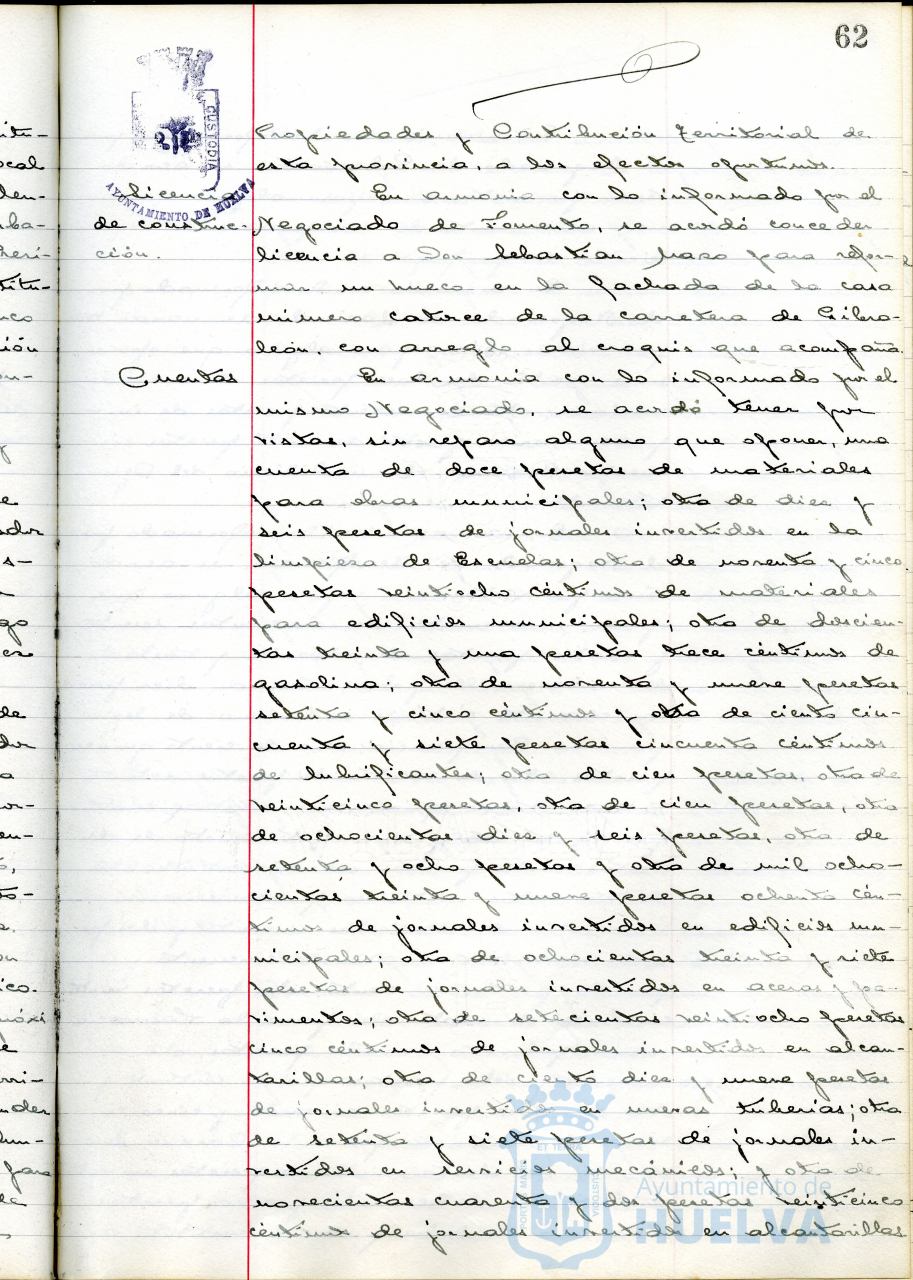 62
Propiedades y Contribución Territorial de
esta provincia, a los efectos oportunos.
Licencia
de construc-
ción.
En armonia con lo informado por el
Negociado de Fomento, se acordó conceder
licencia a Don Sebastián Mazo para refor-
mar un hueco en la fachada de la casa
número catorce de la carretera de Gibra-
león, con arreglo al croquis que acompaña.
Cuentas
En armonia con lo informado por el
mismo Negociado, se acordó tener por
vistas, sin reparo alguno que oponer, una
cuenta de doce pesetas de materiales
para obras municipales; otra de diez y
seis pesetas de jornales invertidos en la
limpieza de Escuelas; otra de noventa y cinco
pesetas veintiocho céntimos de materiales
para edificios municipales; otra de doscien-
tas treinta y una pesetas trece céntimos de
gasolina; otra de noventa y nueve pesetas
setenta y cinco céntimos y otra de ciento cin-
cuenta y siete pesetas cincuenta céntimos
de lubrificantes; otra de cien pesetas, otra de
veinticinco pesetas, otra de cien pesetas, otra
de ochocientas diez y seis pesetas, otra de
setenta y ocho pesetas y otra de mil ocho-
cientas treinta y nueve pesetas ochenta cén-
timos de jornales invertidos en edificios mu-
nicipales; otra de ochocientas treinta y siete
pesetas de jornales invertidos en aceras y pa-
vimentos; otra de setecientas veintiocho pesetas
cinco céntimos de jornales invertidos en alcan-
tarillas; otra de ciento diez y nueve pesetas
de jornales invertidos en nuevas tuberias; otra
de setenta y siete pesetas de jornales in-
vertidos en servicios mecánicos; y otra de
novecientas cuarenta y dos pesetas veinticinco
céntimos de jornales invertidos en alcantarillas
CUSTODIA
AYUNTAMIENTO DE HUELVA
Ayuntamiento de
HUELVA